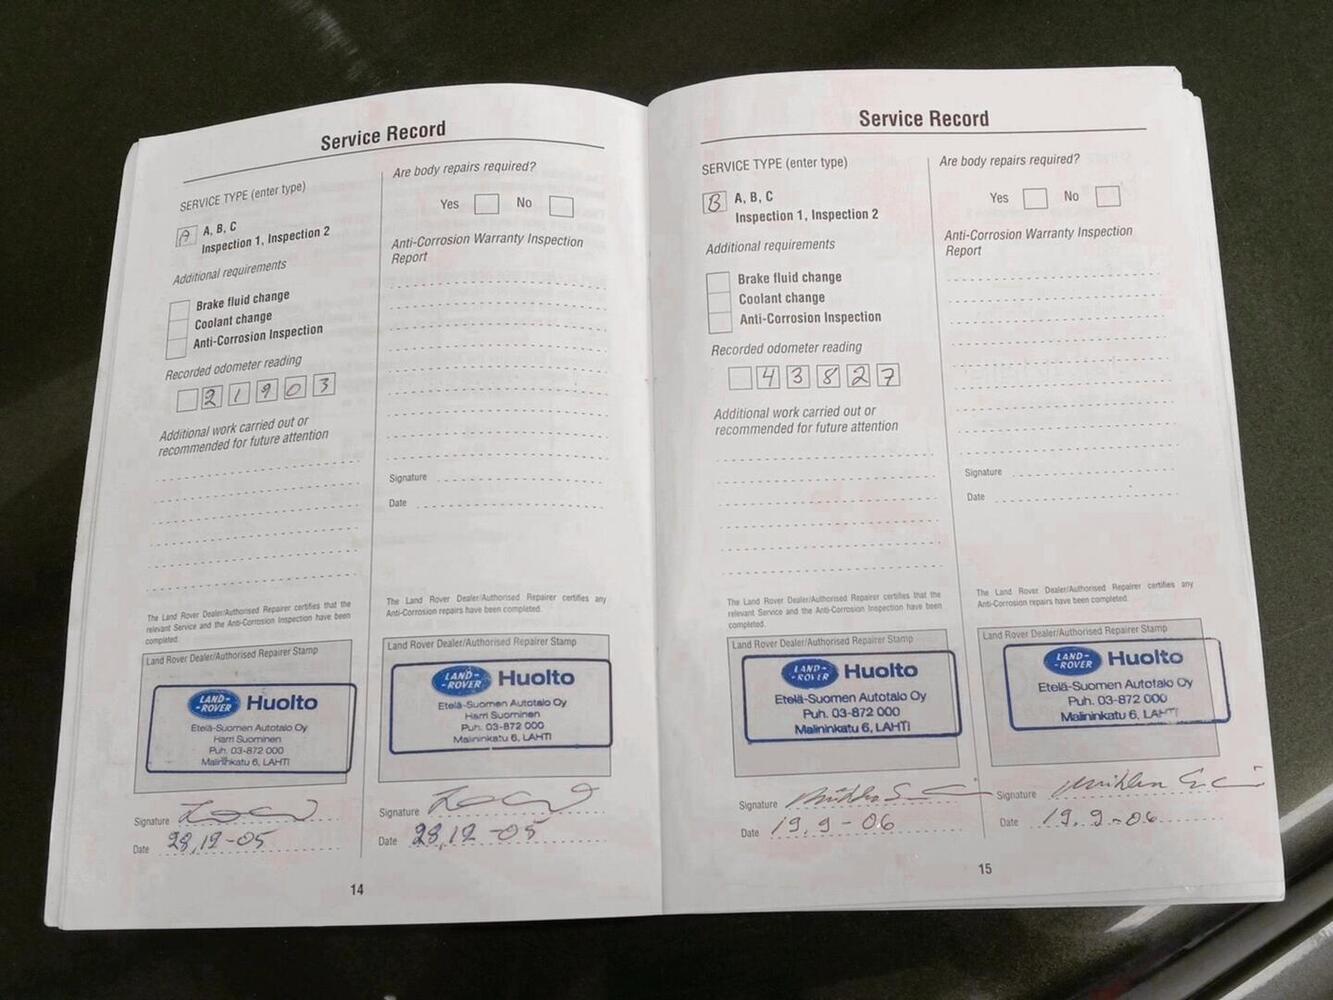 Service Record
SERVICE TYPE (enter type)
A
A, B, C
Inspection 1, Inspection 2
Additional requirements
Brake fluid change
Coolant change
Anti-Corrosion Inspection
Recorded odometer reading
21903
Additional work carried out or
recommended for future attention
The Land Rover Dealer/Authorised Repairer certifies that the
relevant Service and the Anti-Corrosion Inspection have been
completed.
Land Rover Dealer/Authorised Repairer Stamp
LAND-
-ROVER
Huolto
Etelä-Suomen Autotalo Oy
Harri Suominen
Puh. 03-872 000
Malininkatu 6, LAHTI
Signature
Date 28,12-05
Are body repairs required?
Yes No
Anti-Corrosion Warranty Inspection
Report
Signature
Date
The Land Rover Dealer/Authorised Repairer certifies any
Anti-Corrosion repairs have been completed.
Land Rover Dealer/Authorised Repairer Stamp
LAND-
-ROVER
Huolto
Etelä-Suomen Autotalo Oy
Harri Suominen
Puh. 03-872 000
Malininkatu 6, LAHTI
Signature
Date 28,12-05
14
Service Record
SERVICE TYPE (enter type)
B
A, B, C
Inspection 1, Inspection 2
Additional requirements
Brake fluid change
Coolant change
Anti-Corrosion Inspection
Recorded odometer reading
43827
Additional work carried out or
recommended for future attention
The Land Rover Dealer/Authorised Repairer certifies that the
relevant Service and the Anti-Corrosion Inspection have been
completed.
Land Rover Dealer/Authorised Repairer Stamp
LAND-
-ROVER
Huolto
Etelä-Suomen Autotalo Oy
Puh. 03-872 000
Malininkatu 6, LAHTI
Signature
Date 19.9-06
Are body repairs required?
Yes No
Anti-Corrosion Warranty Inspection
Report
Signature
Date
The Land Rover Dealer/Authorised Repairer certifies any
Anti-Corrosion repairs have been completed.
Land Rover Dealer/Authorised Repairer Stamp
LAND-
-ROVER
Huolto
Etelä-Suomen Autotalo Oy
Puh. 03-872 000
Malininkatu 6, LAHTI
Signature
Date 19.9-06
15